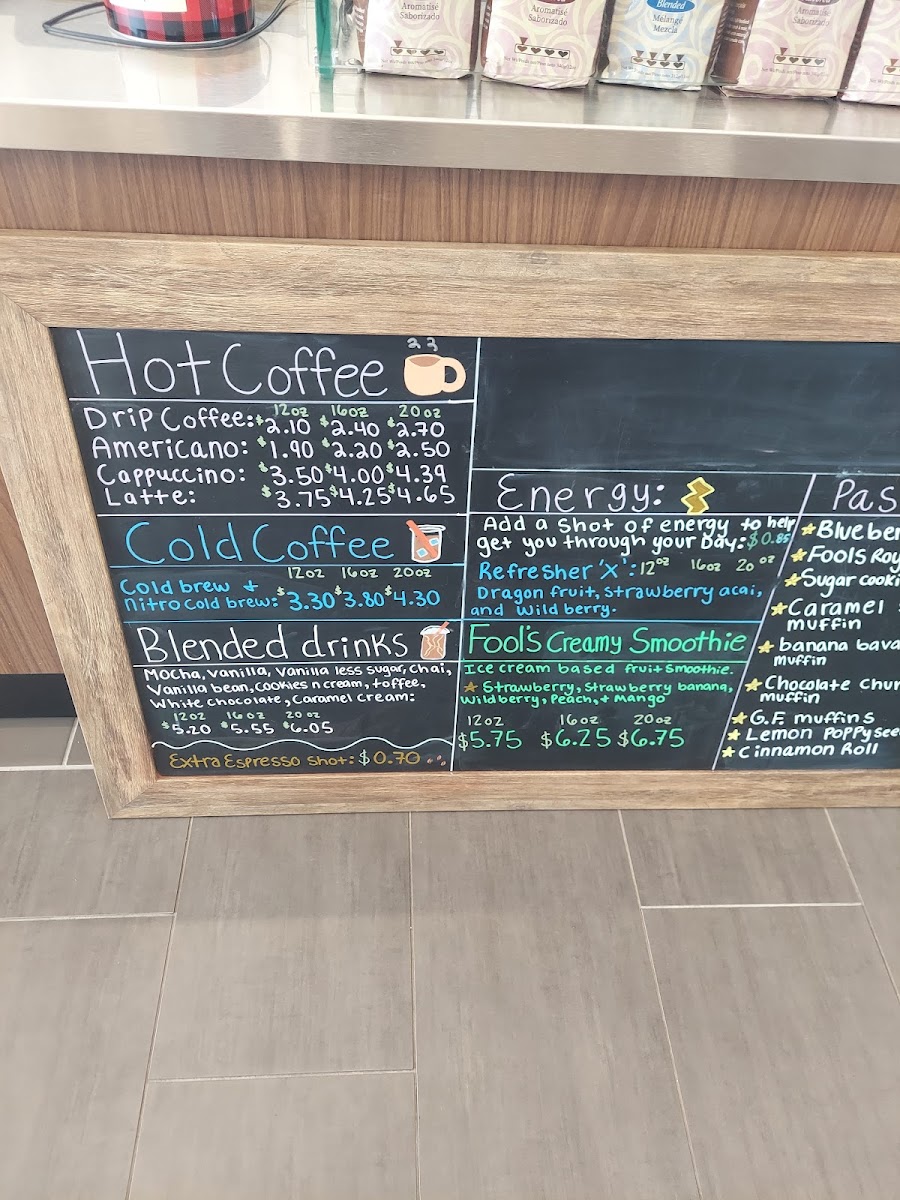 Aromatisé
Saborizado
Aromatisé
Saborizado
Blended
Mélange
Mezcla
Aromatisé
Saborizado
Hot Coffee
12oz 16oz 20oz
Drip Coffee: $2.10 $2.40 $2.70
Americano: $1.90 $2.20 $2.50
Cappuccino: $3.50 $4.00 $4.39
Latte: $3.75 $4.25 $4.65
Cold Coffee
12oz 16oz 20oz
Cold brew +
nitro cold brew: $3.30 $3.80 $4.30
Blended drinks
Mocha, Vanilla, Vanilla less sugar, Chai,
Vanilla bean, Cookies n cream, toffee,
White chocolate, Caramel cream:
12oz 16oz 20oz
$5.20 $5.55 $6.05
Extra Espresso Shot: $0.70
Energy:
Add a shot of energy to help
get you through your Day: $0.85
Refresher 'X': 12oz 16oz 20oz
Dragon fruit, Strawberry acai,
and Wild berry.
Fool's Creamy Smoothie
Ice cream based fruit smoothie.
Strawberry, Strawberry banana,
Wildberry, Peach, + Mango
12oz 16oz 20oz
$5.75 $6.25 $6.75
Pas
Blueber
Fools Roy
Sugar cooki
Caramel
muffin
banana bava
muffin
Chocolate Chun
muffin
G.F. muffins
Lemon Poppysee
Cinnamon Roll